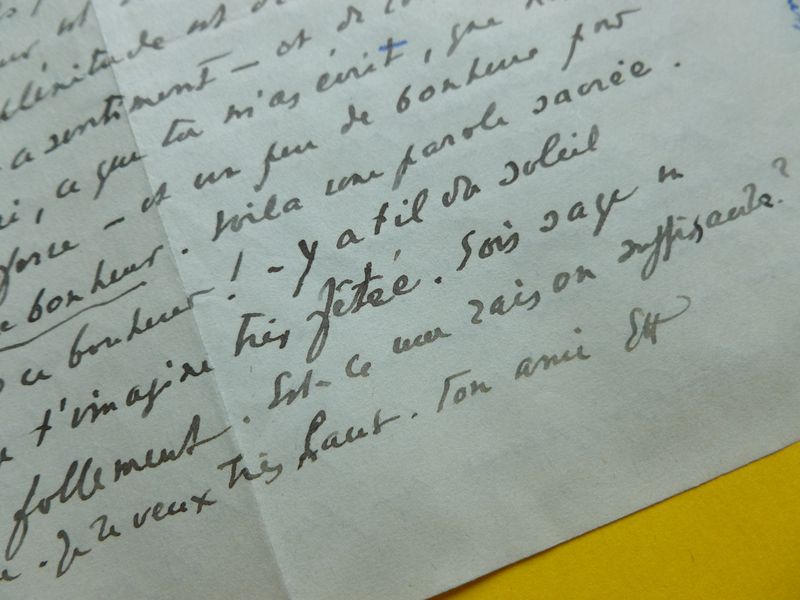 plénitude est
sentiment — et de
, ce que tu m'as écrit, que
force — et un peu de bonheur pour
bonheur. Voilà une parole sacrée.
ce bonheur! — y a t il du soleil
t'imagine très fêtée. Sois sage
follement. Est-ce une raison suffisante?
. Je te veux très haut. Ton amie